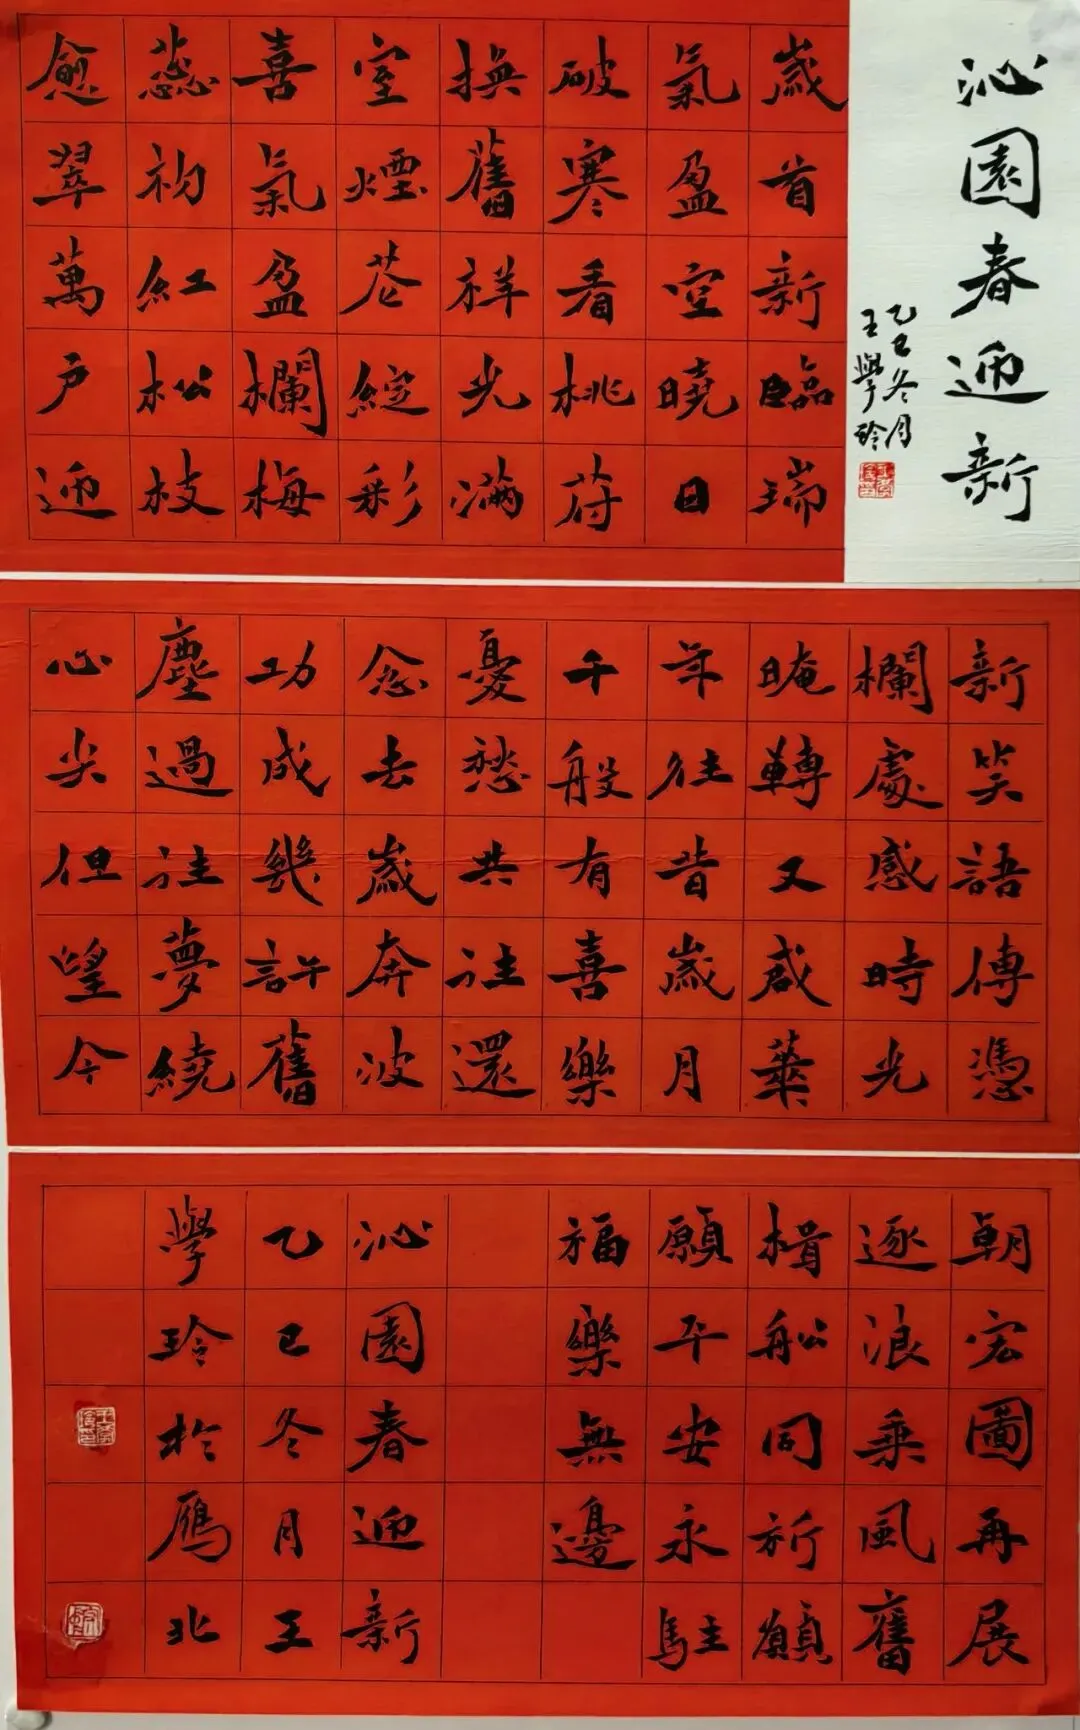 沁園春迎新
乙巳冬月
王學玲
歲首新臨瑞
氣盈空曉日
破寒看桃苻
撫舊祥光滿
室煙花綻彩
喜氣盈欄梅
蕊初紅松枝
愈翠萬戶迎
新笑語傳憑
欄處感時光
晻轉又華
年往昔歲月
千般有喜樂
憂愁共往還
念去歲奔波
功成幾許舊
塵過往夢繞
心尖但望今
朝宏圖再展
逐浪乘風舊
楫船同祈願
願平安永駐
福樂無邊
沁園春迎新
乙巳冬月王
學玲於鴈北